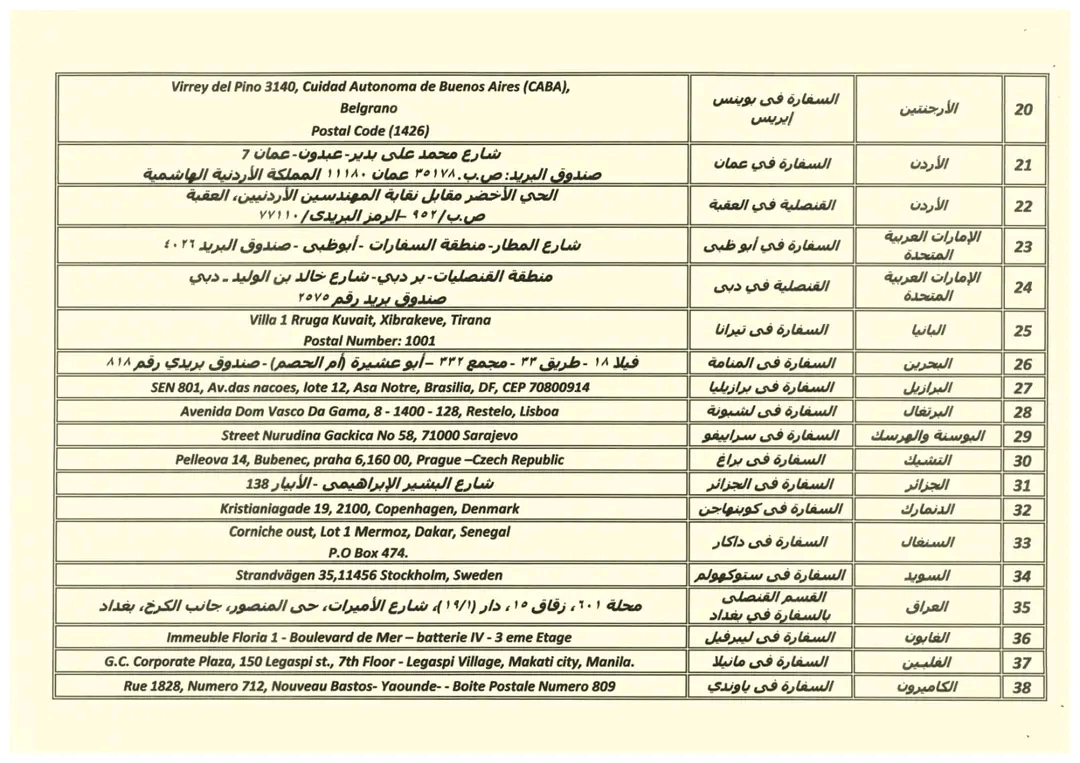 20
الأرجنتين
السفارة فى بوينس
إيريس
Virrey del Pino 3140, Cuidad Autonoma de Buenos Aires (CABA),
Belgrano
Postal Code (1426)
21
الأردن
السفارة في عمان
شارع محمد على بدير- عبدون- عمان 7
صندوق البريد: ص.ب. ٣٥١٧٨ عمان ١١١٨٠ المملكة الأردنية الهاشمية
22
الأردن
القنصلية في العقبة
الحي الأخضر مقابل نقابة المهندسين الأردنيين، العقبة
ص.ب/ ٩٥٢ –الرمز البريدى/ ٧٧١١٠
23
الإمارات العربية
المتحدة
السفارة في أبو ظبى
شارع المطار- منطقة السفارات - أبوظبى - صندوق البريد ٤٠٢٦
24
الإمارات العربية
المتحدة
القنصلية في دبى
منطقة القنصليات- بر دبي- شارع خالد بن الوليد – دبي
صندوق بريد رقم ٢٥٧٥
25
البانيا
السفارة فى تيرانا
Villa 1 Rruga Kuvait, Xibrakeve, Tirana
Postal Number: 1001
26
البحرين
السفارة فى المنامة
فيلا ١٨ - طريق ٣٣ - مجمع ٣٣٢ – أبو عشيرة (أم الحصم) - صندوق بريدي رقم ٨١٨
27
البرازيل
السفارة فى برازيليا
SEN 801, Av.das nacoes, lote 12, Asa Notre, Brasilia, DF, CEP 70800914
28
البرتغال
السفارة فى لشبونة
Avenida Dom Vasco Da Gama, 8 - 1400 - 128, Restelo, Lisboa
29
البوسنة والهرسك
السفارة فى سراييفو
Street Nurudina Gackica No 58, 71000 Sarajevo
30
التشيك
السفارة فى براغ
Pelleova 14, Bubenec, praha 6,160 00, Prague –Czech Republic
31
الجزائر
السفارة فى الجزائر
شارع البشير الإبراهيمى - الأبيار 138
32
الدنمارك
السفارة فى كوبنهاجن
Kristianiagade 19, 2100, Copenhagen, Denmark
33
السنغال
السفارة فى داكار
Corniche oust, Lot 1 Mermoz, Dakar, Senegal
P.O Box 474.
34
السويد
السفارة فى ستوكهولم
Strandvägen 35,11456 Stockholm, Sweden
35
العراق
القسم القنصلى
بالسفارة في بغداد
محلة ٦٠١، زقاق ١٥، دار (١٩/١)، شارع الأميرات، حى المنصور، جانب الكرخ، بغداد
36
الغابون
السفارة فى ليبرفيل
Immeuble Floria 1 - Boulevard de Mer – batterie IV - 3 eme Etage
37
الفلبين
السفارة فى مانيلا
G.C. Corporate Plaza, 150 Legaspi st., 7th Floor - Legaspi Village, Makati city, Manila.
38
الكاميرون
السفارة فى ياوندي
Rue 1828, Numero 712, Nouveau Bastos- Yaounde- - Boite Postale Numero 809